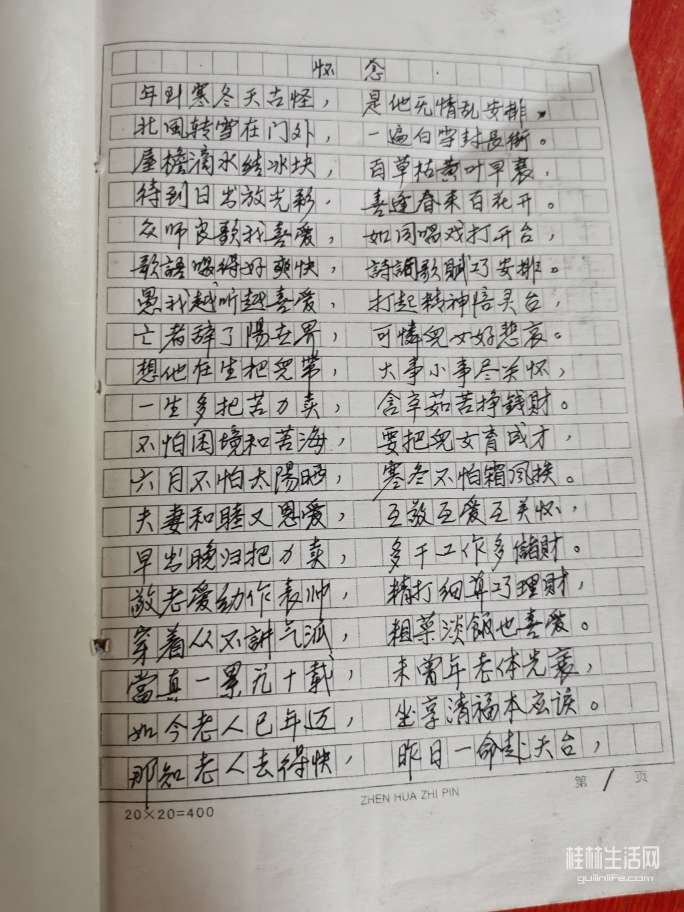 怀念
年到寒冬天古怪，是他无情乱安排。
北風转雪在门外，一遍白雪封長街。
屋檐滴水结冰块，百草枯黄叶早衰，
待到日出放光彩，喜逢春来百花开。
众师良歌我喜爱，如同唱戏打开台，
歌語唱得好爽快，詩詞歌賦巧安排。
愚我越听越喜爱，打起精神悟灵台，
亡者辞了陽世界，可憐兒女好悲哀。
想他在生把兒带，大事小事尽关怀，
一生多把苦力卖，含辛茹苦挣錢財。
不怕困境和苦海，要把兒女育成才，
六月不怕太陽晒，寒冬不怕霜风挨。
夫妻和睦又恩爱，互敬互爱互关怀，
早出晚归把力卖，多干工作多儲財。
敬老爱幼作表帅，精打细算巧理財，
穿着从不講气派，粗菜淡飯也喜爱。
當真一累几十載，未曾年老体先衰，
如今老人已年迈，坐享清福本应该。
那知老人去得快，昨日一命赴天台，
20×20=400
ZHEN HUA ZHI PIN
第1页
桂林生活网
guilinlife.com